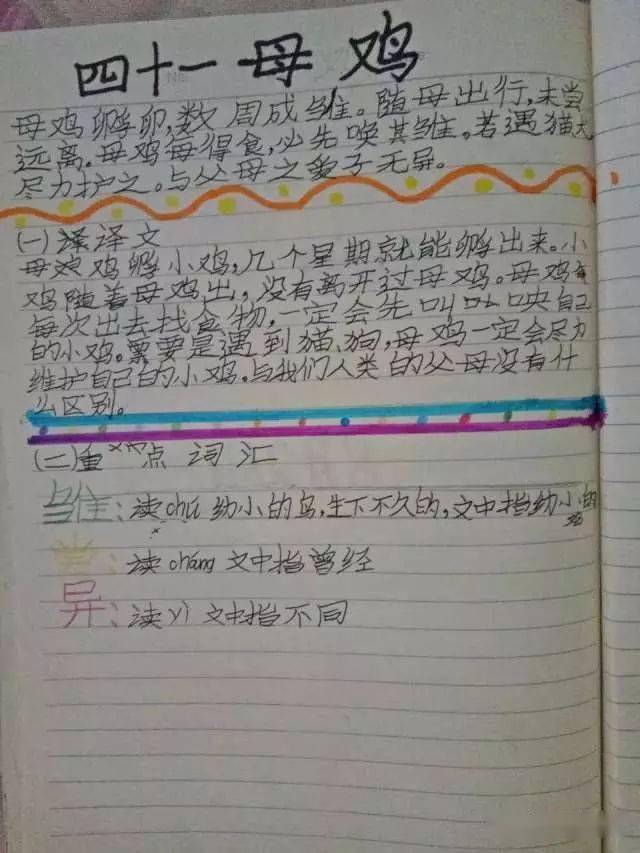 四十一母鸡
母鸡孵卵,数周成雏。随母出行,未尝
远离。母鸡每得食,必先唤其雏。若遇猫犬
尽力护之。与父母之爱子无异。
(一)译文
母鸡孵小鸡,几个星期就能孵出来。小
鸡随着母鸡出,没有离开过母鸡。母鸡
每次出去找食物,一定会先叫叫唤自己
的小鸡。要是遇到猫、狗,母鸡一定会尽力
维护自己的小鸡。与我们人类的父母没有什
么区别。
(二)重点词汇
雏:读chú幼小的鸟,生下不久的,文中指幼小的
鸡
尝:读cháng文中指曾经
异:读yì文中指不同